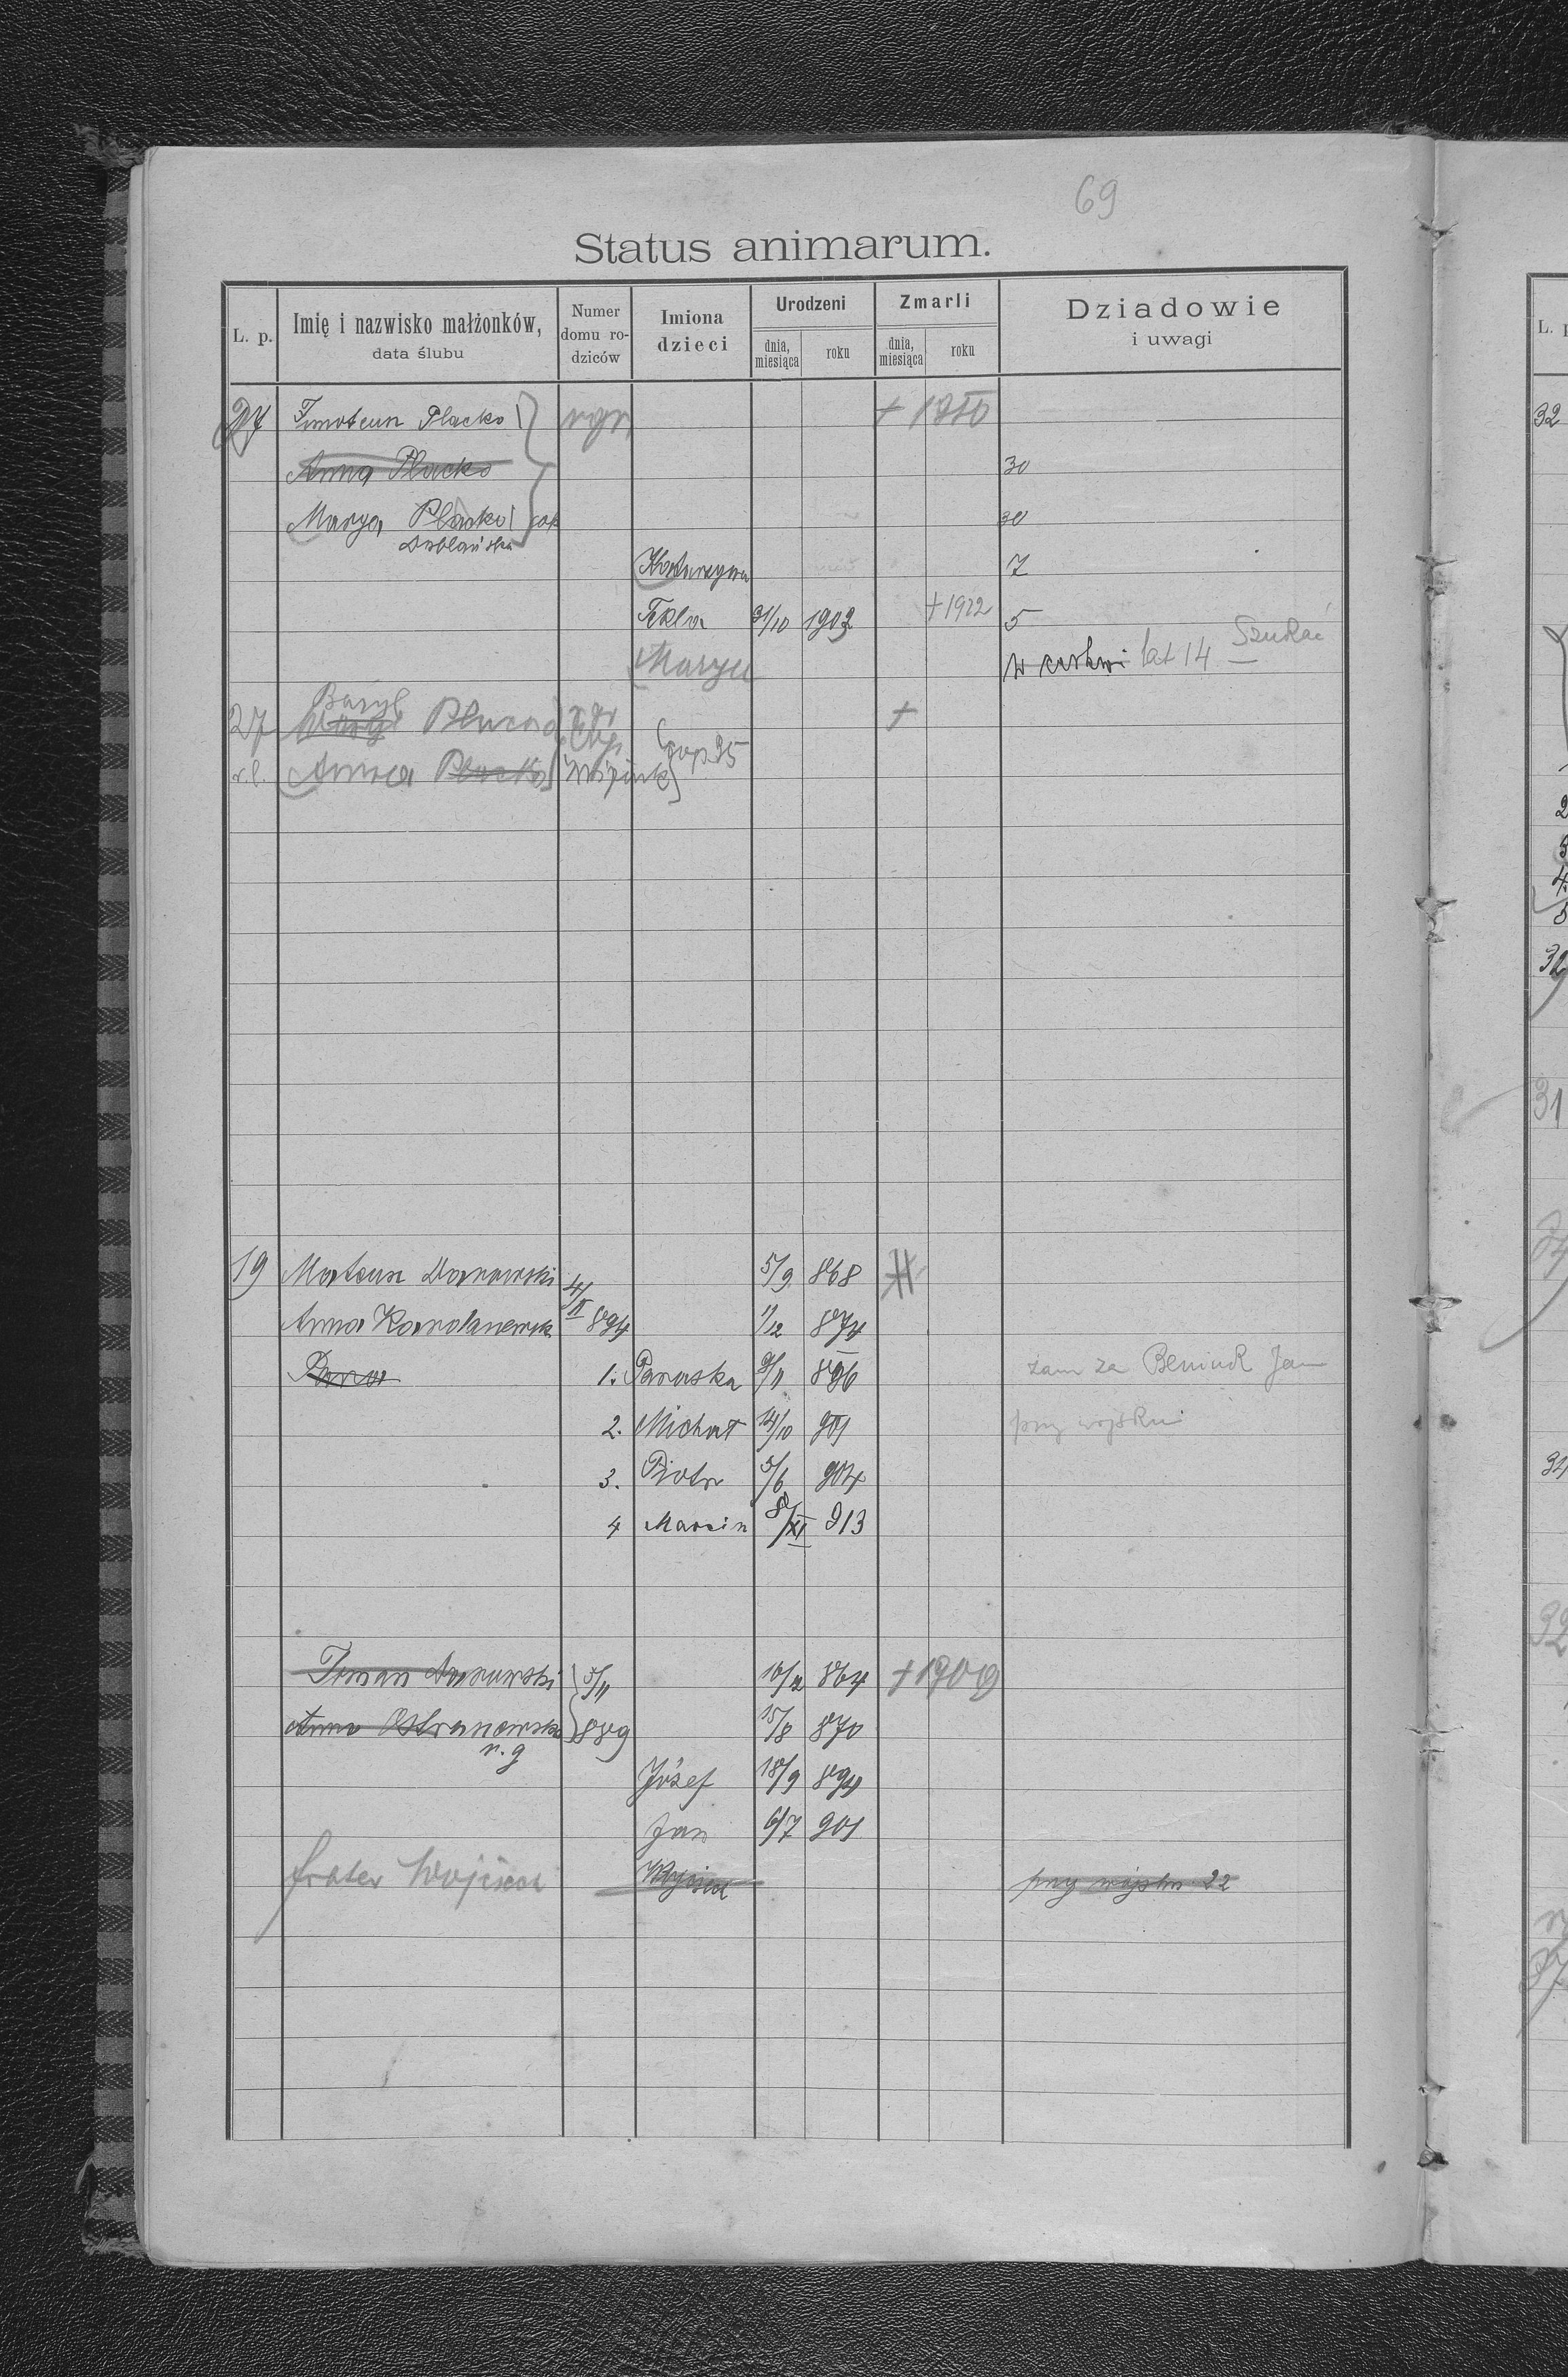 69
Status animarum.
L. p.
Imię i nazwisko małżonków,
data ślubu
Numer
domu ro-
dziców
Imiona
dzieci
Urodzeni
dnia,
miesiąca
roku
Zmarli
dnia,
miesiąca
roku
Dziadowie
i uwagi
27 Timoteusz Placko
Anna Placko 30
Marya Placko 30
Katarzyna 7
Tekla 31/10 1902 + 1922 5
Marya w cerkwi lat 14 Szukać
27 Bazyl +
r.l. Anna Placko
19 Mateusz Darowski 5/9 868
Anna 4/II 894 1/12 874
1. Paraska 9/11 896 zam za Beniuk Jan
2. Michał 14/10 901 przy wojsku
3. Piotr 5/6 904
4 Marcin 8/XI 913
Roman Darowski 5/11 16/2 864 + 1909
Anna Ostranowska 889 15/8 870
Józef 18/9 894
Jan 6/7 901
frater Wojciech Wojciech przy wojsku 22
L. p
32
2
3
4.
5
32
31